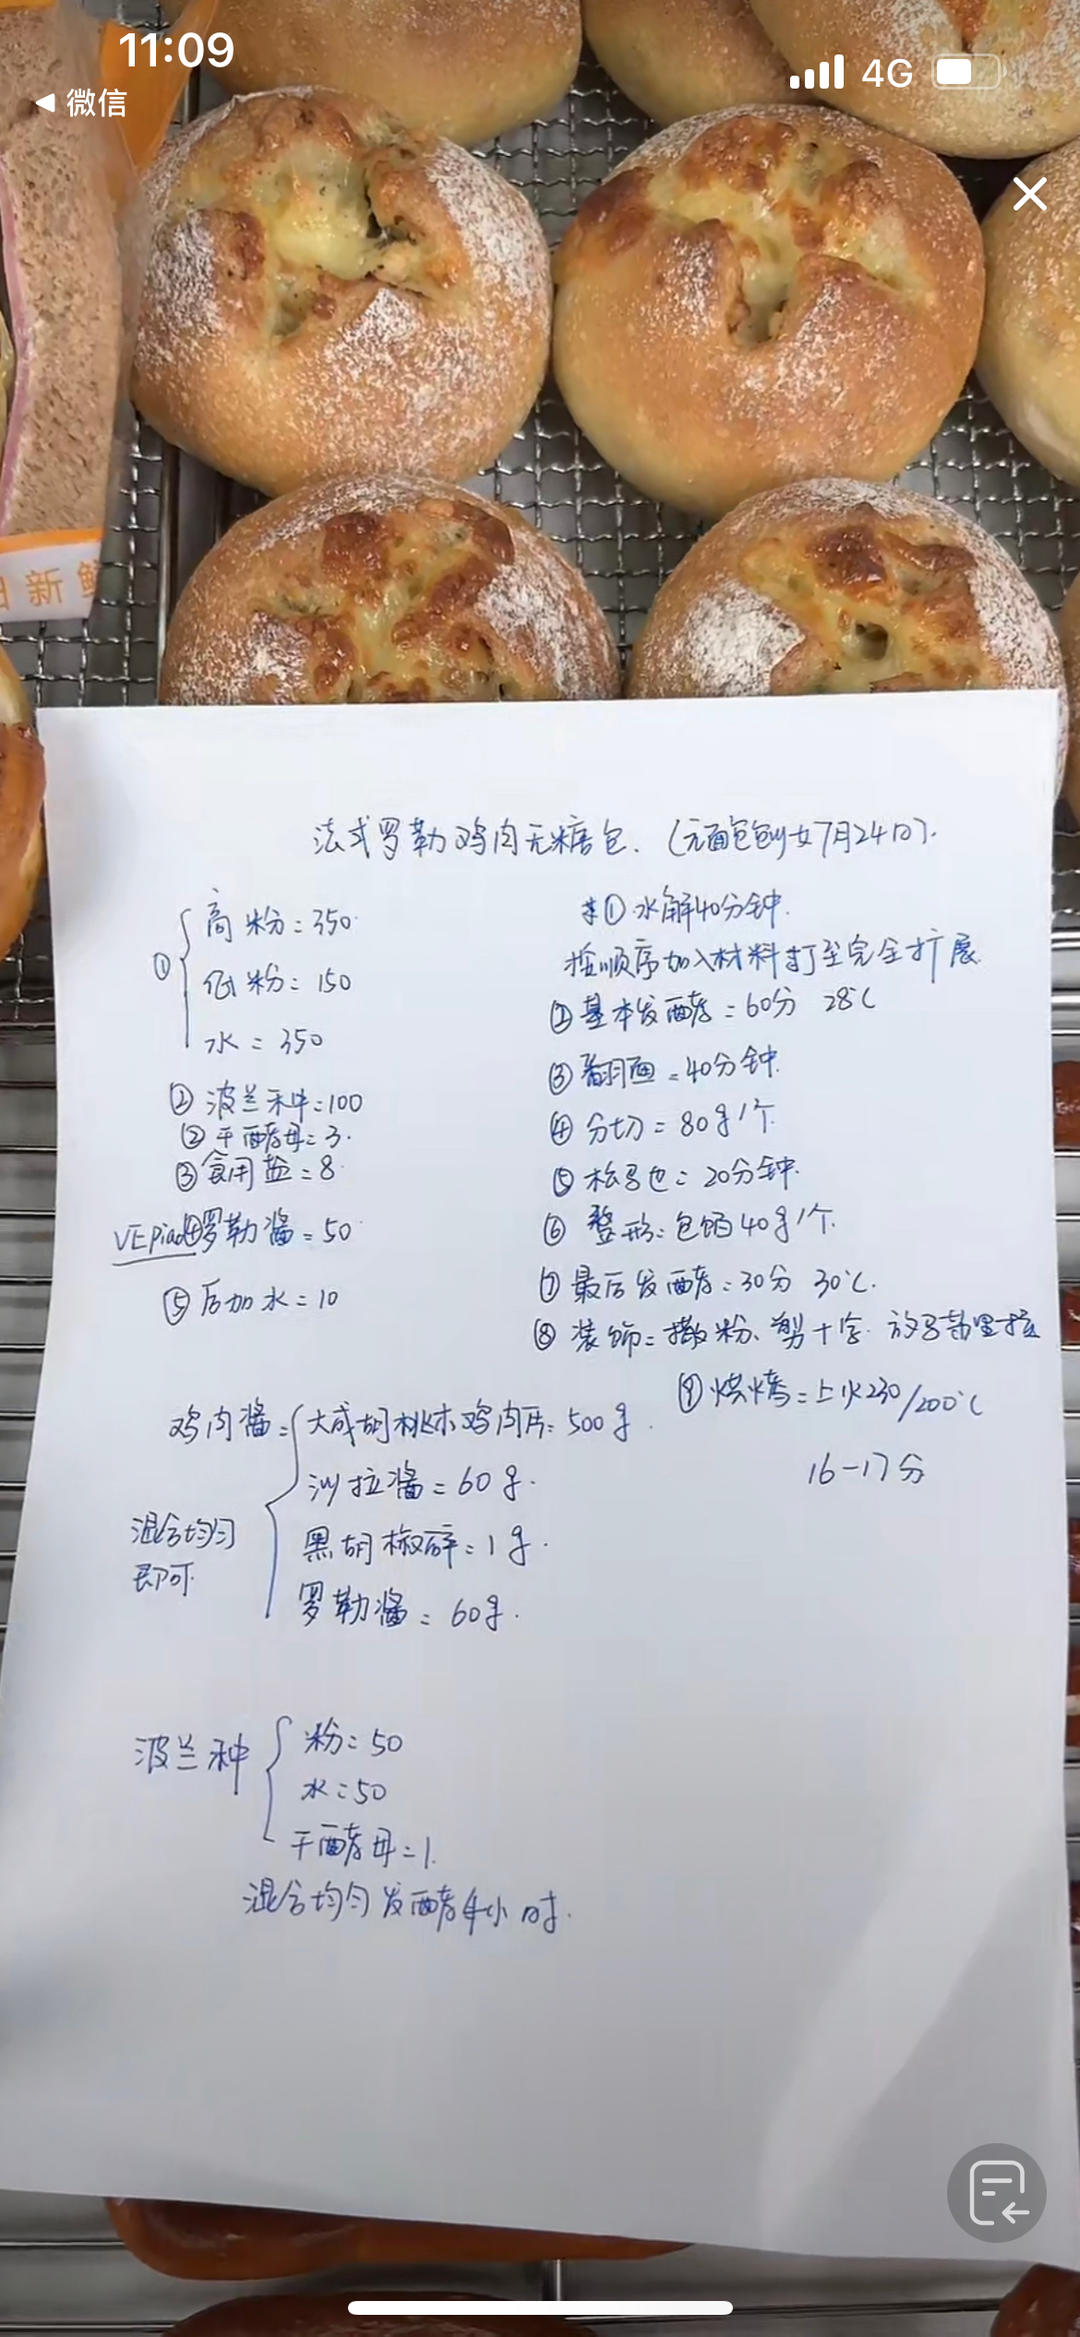 11:09
4G
微信
日新鲜
法式罗勒鸡肉无糖包.
7月24日).
① 高粉=350
低粉=150
水=350
② 波兰种=100
② 干酵母=3.
③ 食用盐=8
④罗勒酱=50
⑤ 后加水=10
① 水解40分钟.
按顺序加入材料打至完全扩展
② 基本发酵=60分 28℃
③ 翻面=40分钟.
④ 分切=80g/个.
⑤ 松弛=20分钟.
⑥ 整形=包馅40g/个.
⑦ 最后发酵=30分 30℃.
⑧ 装饰=撒粉、剪十字.
⑨ 烘烤=上火230/200℃
16-17分
鸡肉酱= 大成胡桃木鸡肉片=500g.
沙拉酱=60g.
黑胡椒碎=1g.
罗勒酱=60g.
混合均匀
即可.
波兰种 粉=50
水=50
干酵母=1.
混合均匀发酵4小时.